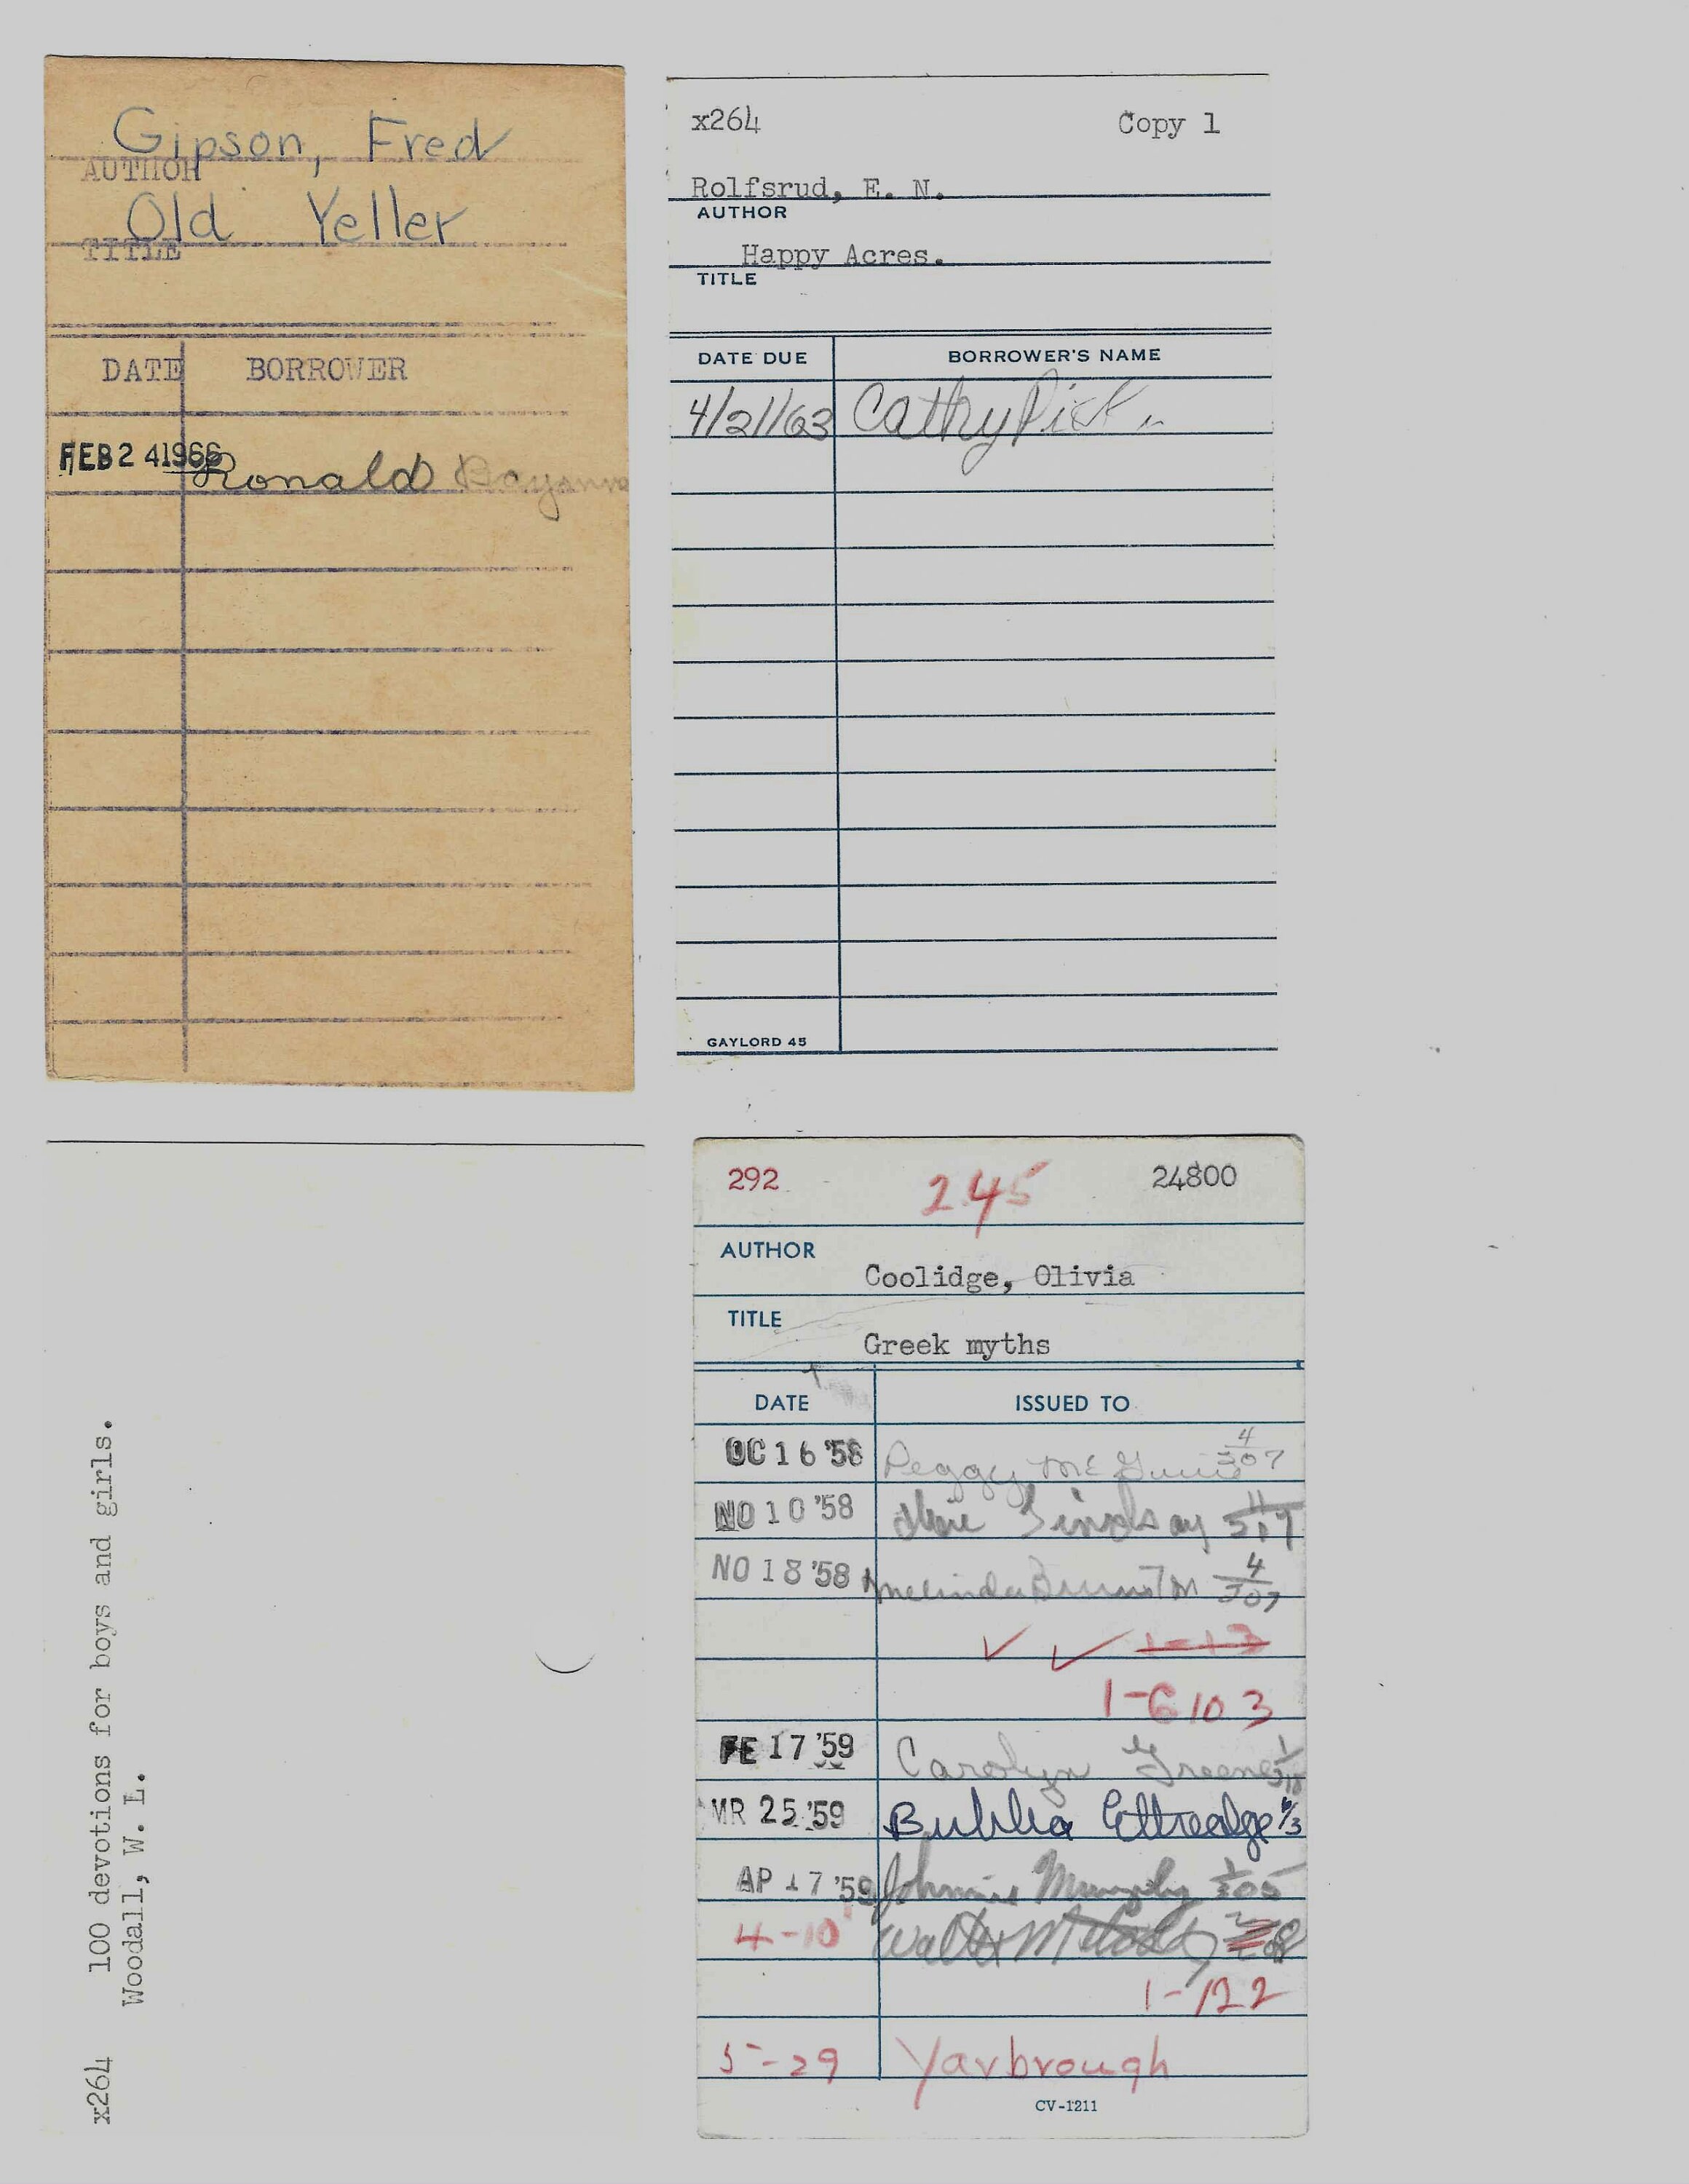 Gipson, Fred
AUTHOR
Old Yeller
TITLE
DATE BORROWER
FEB 24 1966 Ronald
x264 Copy 1
Rolfsrud, E. N.
AUTHOR
Happy Acres.
TITLE
DATE DUE BORROWER'S NAME
4/21/63 Cathy
GAYLORD 45
x264 100 devotions for boys and girls.
Woodall, W. L.
292 245 24800
AUTHOR
Coolidge, Olivia
TITLE
Greek myths
DATE ISSUED TO
OC 16 '58 Peggy McGuire 4/307
NO 10 '58 Lindsay 11/307
NO 18 '58 4/307
1-13
1-6 103
FE 17 '59 Carolyn Greene
MR 25 '59 Bubba Ettredge 6/3
AP 17 '59 Johnnie Murphy 1/305
4-10 Walter
1-122
5-29 Yarbrough
CV-1211